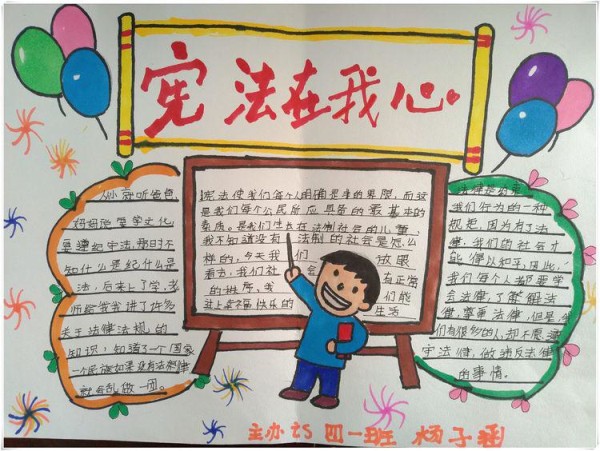 宪法在我心。
从小就听爸爸
妈妈说要学文化
要遵纪守法,那时不
知什么是纪什么是
法,后来上了学,老
师给我们讲了许多
关于法律法规的
知识,知道了一个国家
一个民族如果没有法和律
就会乱做一团。
宪法使我们每个人明确是非的界限,而这
是我们每个公民所应具备的最基本的
素质。是我们生长在法制社会的儿童,
我不知道没有法制的社会是怎么
样的,今天我们放眼
看去,我们社会有正常
的秩序,我们能
过上幸福快乐的生活
法律是约束
我们行为的一种
规范,因为有了法
律,我们的社会才
能得以和平,因此,
我们每个人都要学
会法律,了解法
律,尊重法律,但是
们有很多的人,却不愿遵
守法律,做违反法律
的事情。
主办 四一班 杨子涵